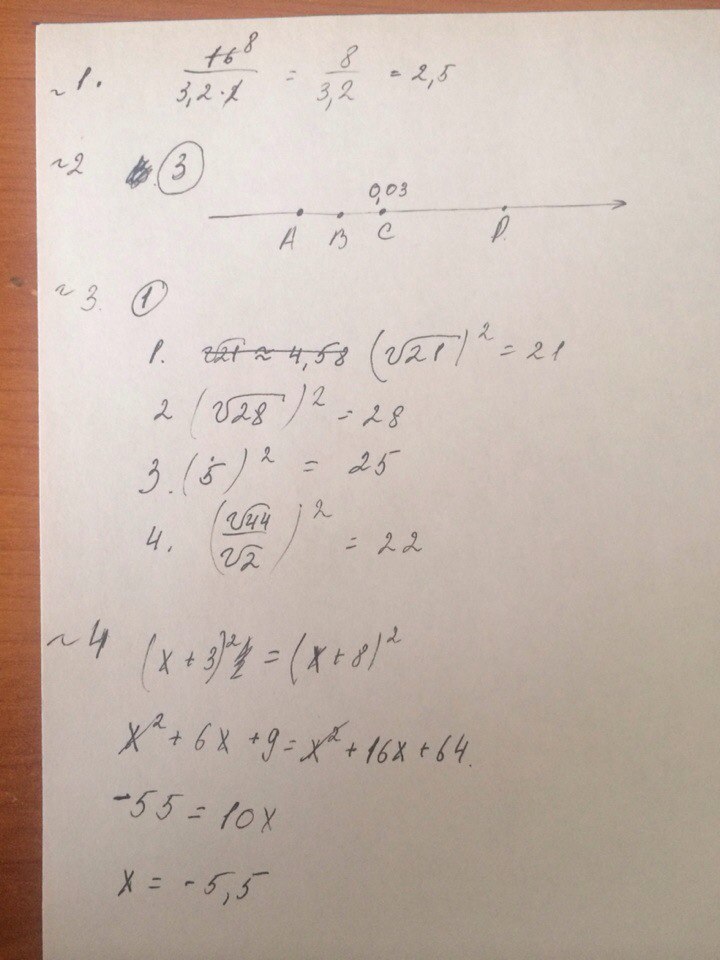 ~1. 16⁸/(3,2·2) = 8/3,2 = 2,5
~2 3
0,03
A B C D
~3. 1
1. √21 ≈ 4,58 (√21)² = 21
2 (√28)² = 28
3. (5)² = 25
4. (√44/√2)² = 22
~4 (x+3)² = (x+8)²
x² + 6x + 9 = x² + 16x + 64.
-55 = 10x
x = -5,5